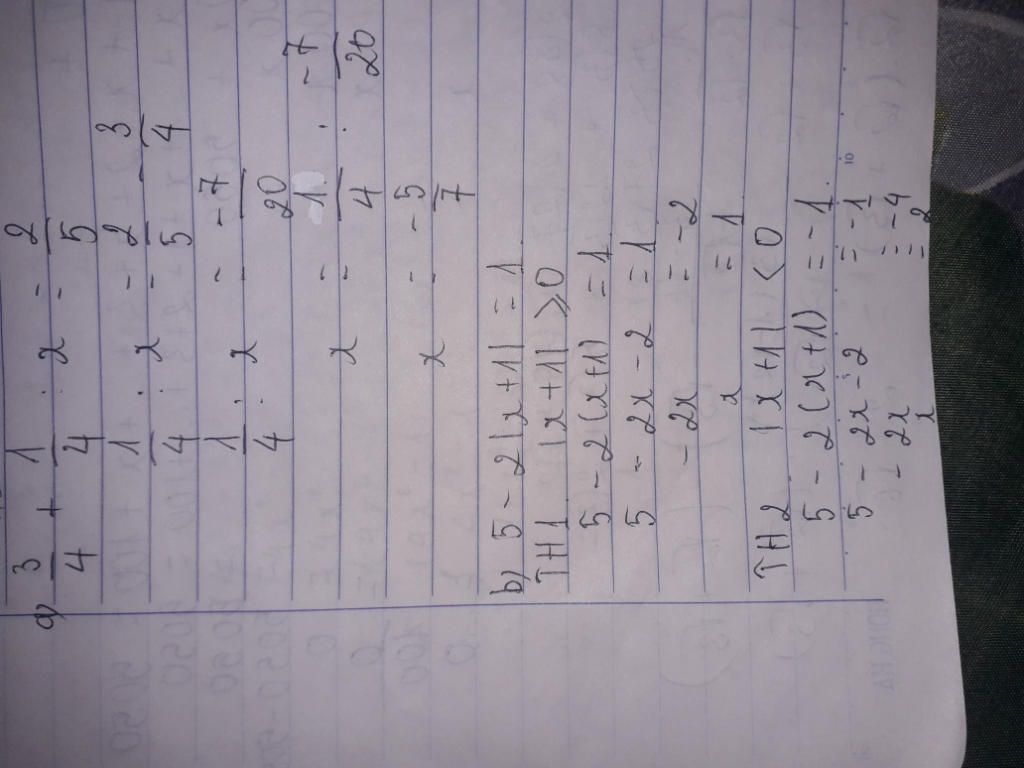 a) 3/4 + 1/4 : x = 2/5
1/4 : x = 2/5 - 3/4
1/4 : x = -7/20
x = 1/4 : -7/20
x = -5/7
b) 5 - 2|x+1| = 1
TH1 |x+1| ⩾ 0
5 - 2(x+1) = 1
5 - 2x - 2 = 1
-2x = -2
x = 1
TH2 |x+1| < 0
5 - 2(x+1) = -1
5 - 2x - 2 = -1
- 2x = -4
x = 2